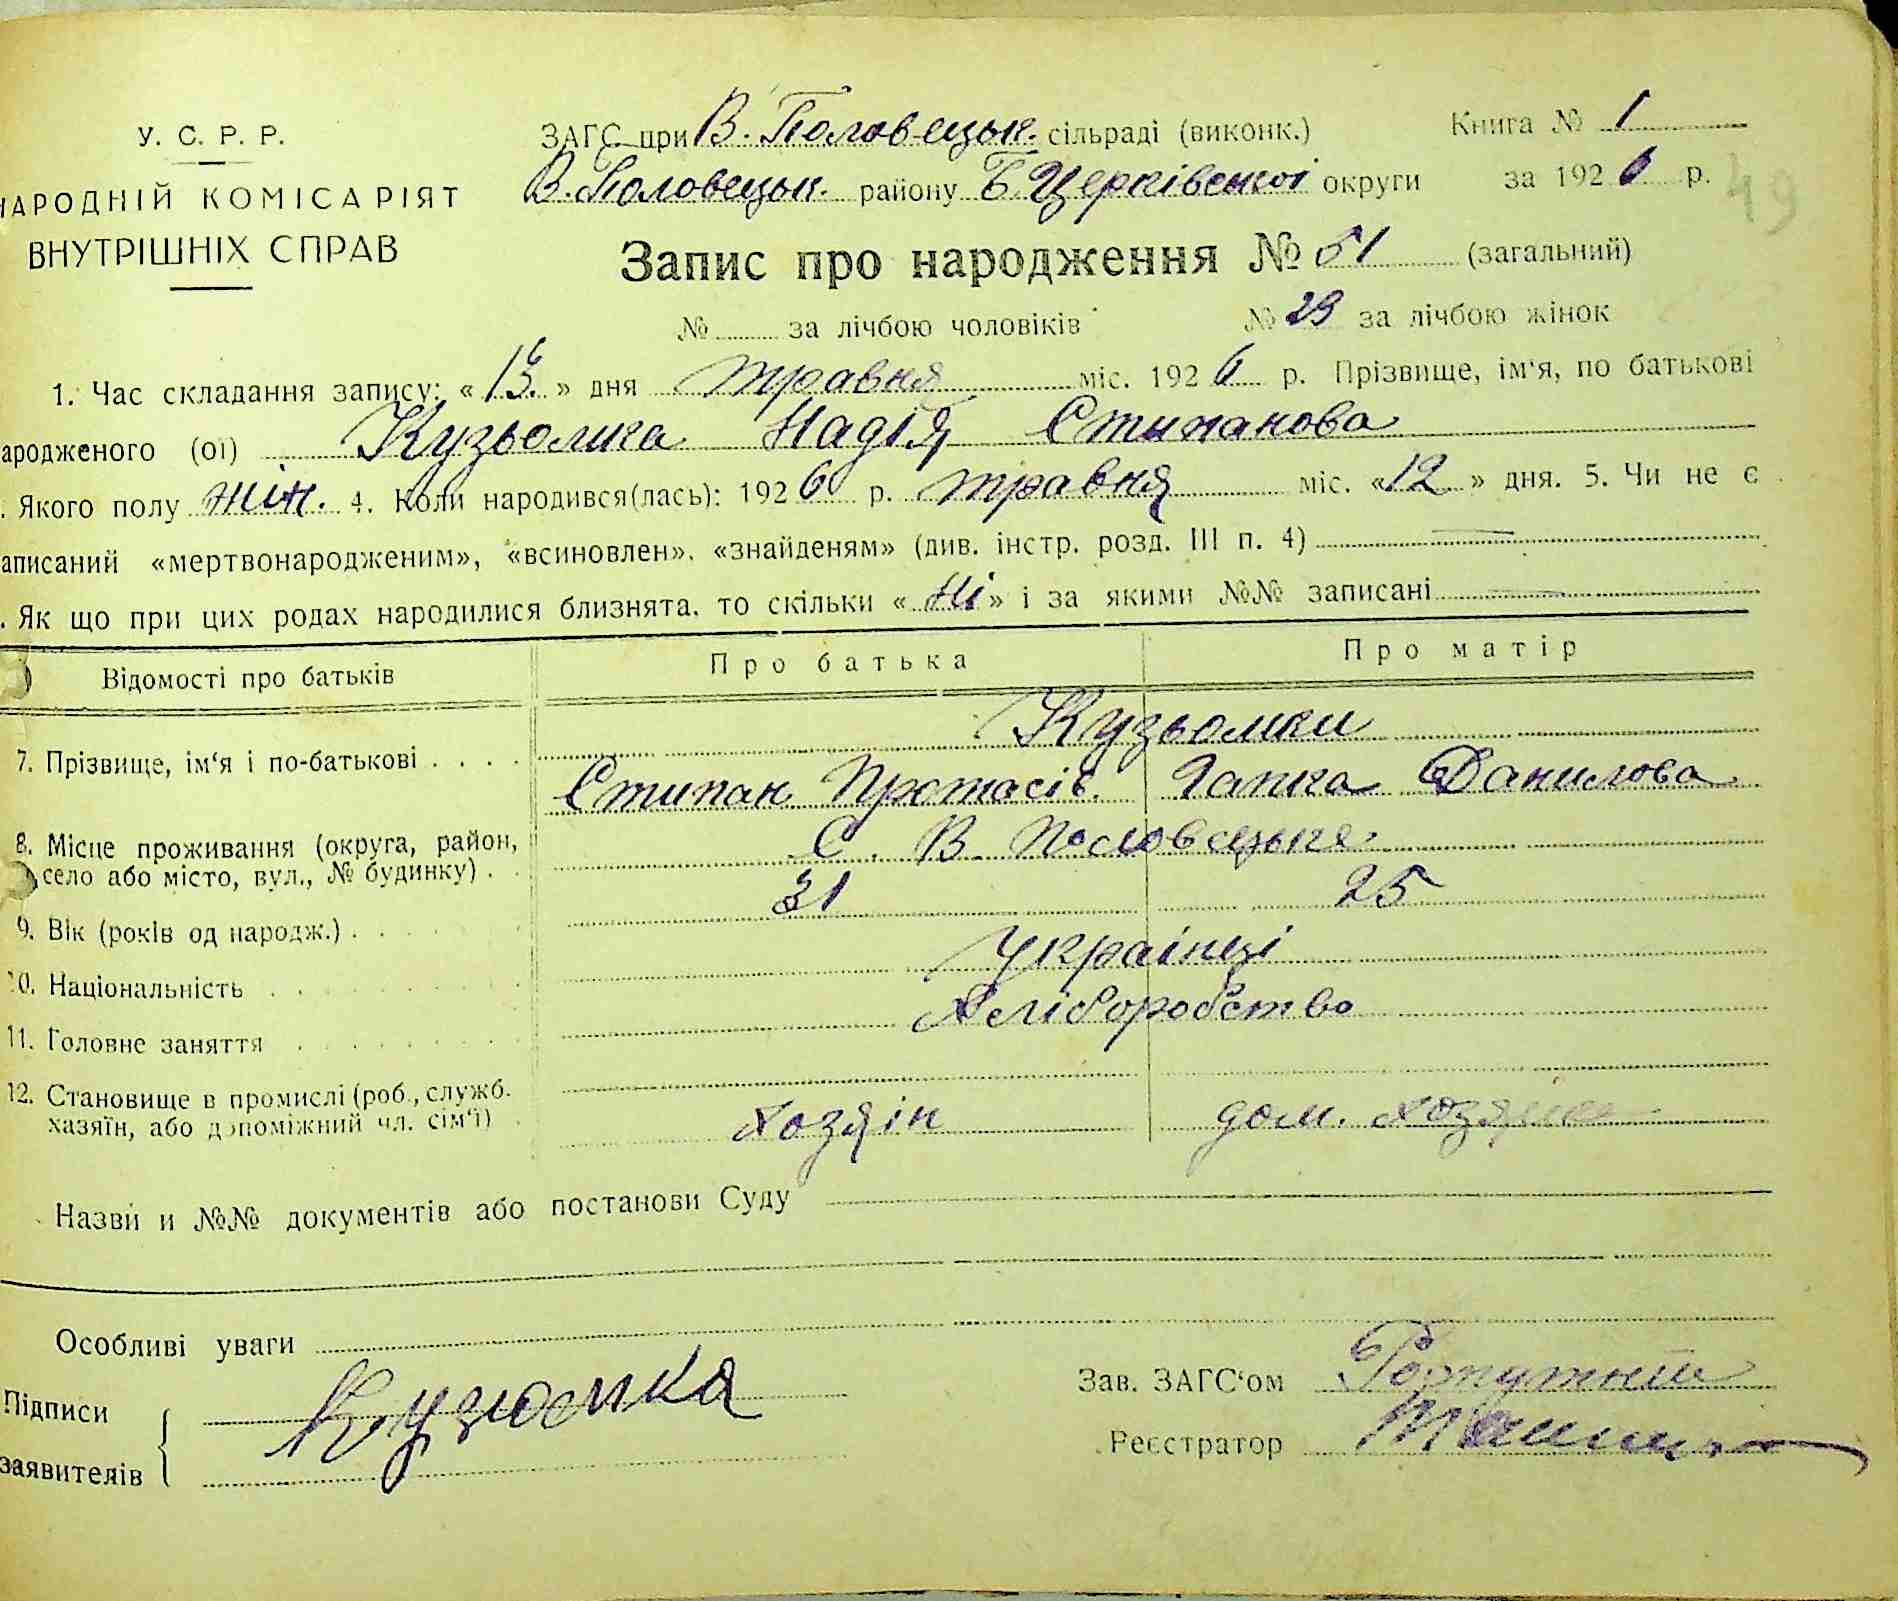 У. С. Р. Р.
НАРОДНІЙ КОМІСАРІЯТ
ВНУТРІШНІХ СПРАВ
ЗАГС при В. Половецьк. сільраді (виконк.) Книга № 1
В. Половецьк. району Б. Церківської округи за 1926 р. 49
Запис про народження № 51 (загальний)
№ за лічбою чоловіків № 23 за лічбою жінок
1. Час складання запису: « » дня травня міс. 1926 р. Прізвище, ім'я, по батькові
ародженого (ої) Кузьомка Надія Стипанова
. Якого полу жін. 4. Коли народився(лась): 1926 р. травня міс. «12» дня. 5. Чи не є
аписаний «мертвонародженим», «всиновлен», «знайденям» (див. інстр. розд. III п. 4)
. Як що при цих родах народилися близнята, то скільки «Ні» і за якими №№ записані
Відомості про батьків Про батька Про матір
Кузьомки
7. Прізвище, ім'я і по-батькові Стипан Протасів. Гапка Данилова
8. Місце проживання (округа, район, С. В. Половецьке
село або місто, вул., № будинку)
9. Вік (років од народж.) 31 25
10. Національність Українці
11. Головне заняття Хліборобство
12. Становище в промислі (роб., служб.
хазяїн, або допоміжний чл. сім'ї) хозяін дом. хозяйка
Назви и №№ документів або постанови Суду
Особливі уваги
Підписи Кузюмка
заявителів
Зав. ЗАГС'ом
Реєстратор